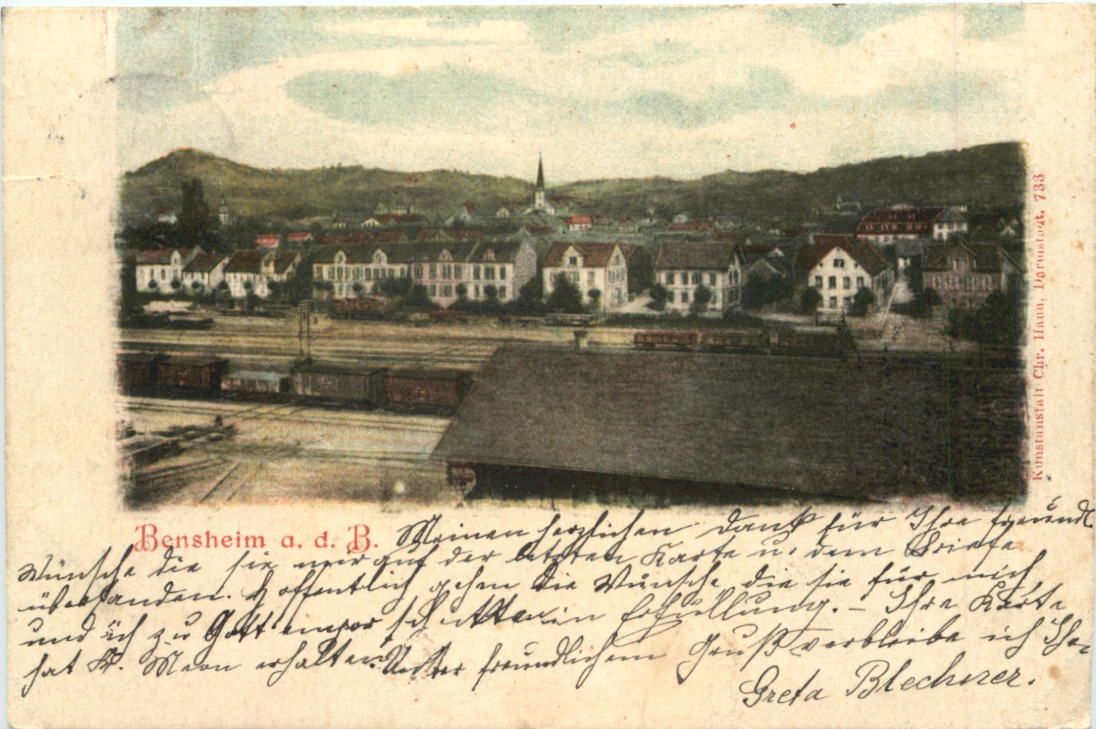 Kunstanstalt Chr. Haun, Darmstadt. 733
Bensheim a. d. B.
Meinen herzlichen Dank für Ihre freundl.
Wünsche die sie mir auf der letzten Karte u. dem Briefe
übersanden. Hoffentlich gehen die Wünsche die sie für mich
und ich zu Gott empor schickte in Erfüllung. – Ihre Karte
hat Fr. erhalten. Unter freundlichem Gruß verbleibe ich Ihre
Greta